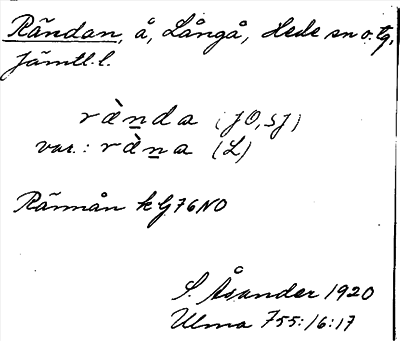 Rändan, å, Långå, Hede sn o. tg,
Jämtl. l.
rànda (JO, SJ)
var.: ràna (L)
Rännån k G76NO
S. Åsander 1920
Ulma 755:16:17